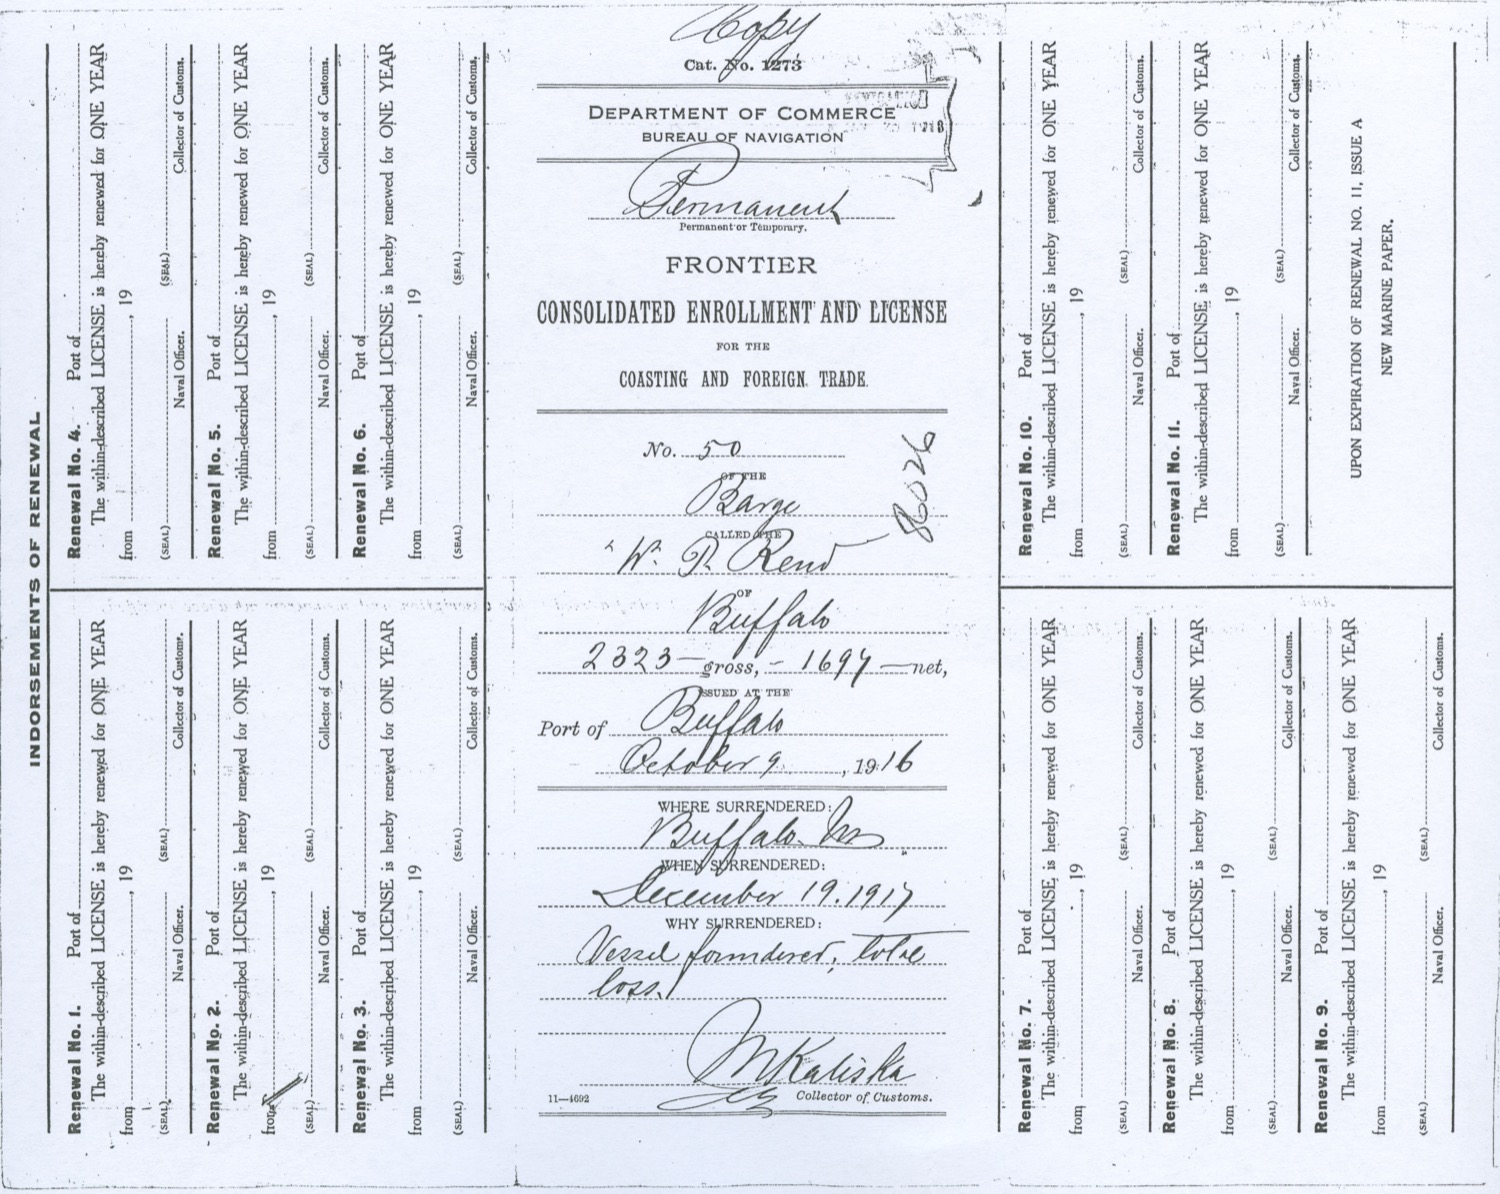 INDORSEMENTS OF RENEWAL
Renewal No. 1. Port of
The within-described LICENSE is hereby renewed for ONE YEAR
from , 19
(SEAL) (SEAL)
Naval Officer. Collector of Customs.
Renewal No. 2. Port of
The within-described LICENSE is hereby renewed for ONE YEAR
from , 19
(SEAL) (SEAL)
Naval Officer. Collector of Customs.
Renewal No. 3. Port of
The within-described LICENSE is hereby renewed for ONE YEAR
from , 19
(SEAL) (SEAL)
Naval Officer. Collector of Customs.
Renewal No. 4. Port of
The within-described LICENSE is hereby renewed for ONE YEAR
from , 19
(SEAL) (SEAL)
Naval Officer. Collector of Customs.
Renewal No. 5. Port of
The within-described LICENSE is hereby renewed for ONE YEAR
from , 19
(SEAL) (SEAL)
Naval Officer. Collector of Customs.
Renewal No. 6. Port of
The within-described LICENSE is hereby renewed for ONE YEAR
from , 19
(SEAL) (SEAL)
Naval Officer. Collector of Customs.
Copy
Cat. No. 1273
DEPARTMENT OF COMMERCE
BUREAU OF NAVIGATION
Permanent
Permanent or Temporary.
FRONTIER
CONSOLIDATED ENROLLMENT AND LICENSE
FOR THE
COASTING AND FOREIGN TRADE.
No. 50
OF THE
Barge
86026
CALLED THE
"W. P. Rend"
OF
Buffalo
2323 — gross, - 1697 — net,
ISSUED AT THE
Port of Buffalo
October 9 , 1916
WHERE SURRENDERED:
Buffalo
WHEN SURRENDERED:
December 19. 1917
WHY SURRENDERED:
Vessel foundered, total
loss.
Collector of Customs.
11—4692
Renewal No. 7. Port of
The within-described LICENSE is hereby renewed for ONE YEAR
from , 19
(SEAL) (SEAL)
Naval Officer. Collector of Customs.
Renewal No. 8. Port of
The within-described LICENSE is hereby renewed for ONE YEAR
from , 19
(SEAL) (SEAL)
Naval Officer. Collector of Customs.
Renewal No. 9. Port of
The within-described LICENSE is hereby renewed for ONE YEAR
from , 19
(SEAL) (SEAL)
Naval Officer. Collector of Customs.
Renewal No. 10. Port of
The within-described LICENSE is hereby renewed for ONE YEAR
from , 19
(SEAL) (SEAL)
Naval Officer. Collector of Customs.
Renewal No. 11. Port of
The within-described LICENSE is hereby renewed for ONE YEAR
from , 19
(SEAL) (SEAL)
Naval Officer. Collector of Customs.
UPON EXPIRATION OF RENEWAL NO. 11, ISSUE A
NEW MARINE PAPER.